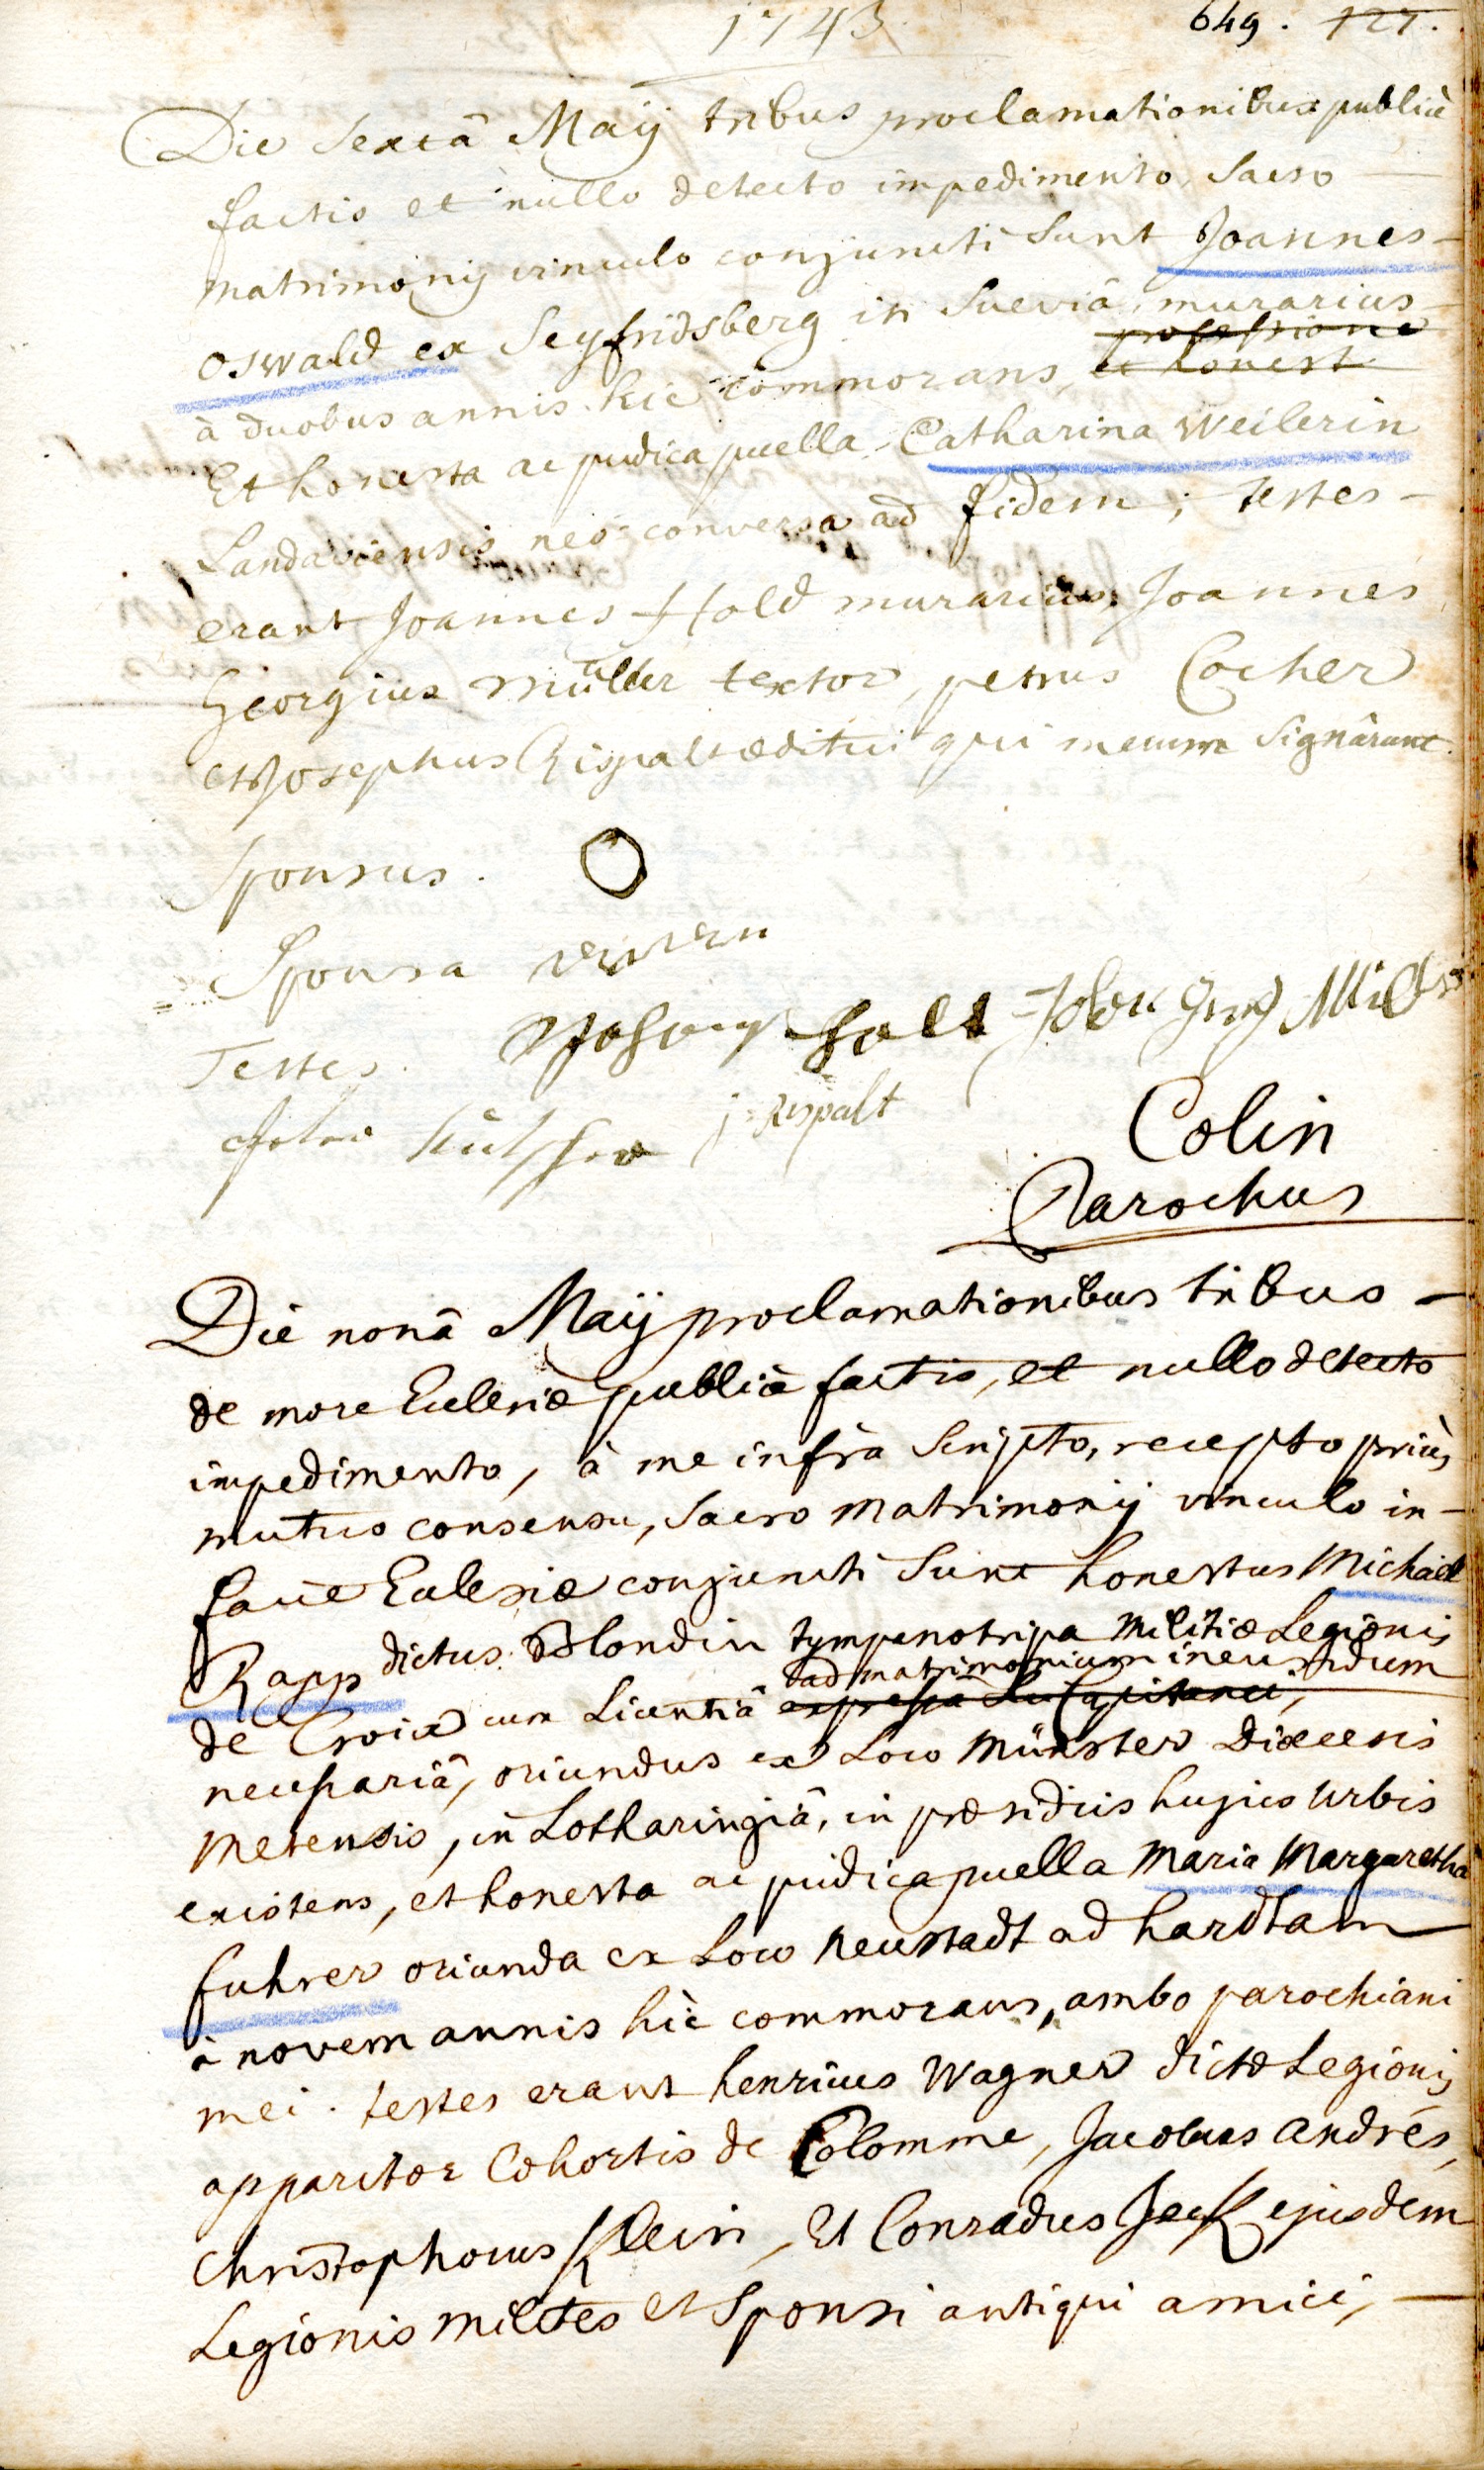 1743
649. 727.
Die Sextâ Maij tribus proclamationibus publicè
factis et nullo detecto impedimento, Sacro
matrimonij vinculo conjuncti Sunt Joannes
Oswald ex Seyfridsberg in Sueviâ, murarius
professione
à duobus annis hic commorans, et honest
Et honesta ac pudica puella, Catharina Weilerin
Landaviensis neo-conversa ad fidem; testes
erant Joannes Hold murarius, Joannes
Georgius Müller textor, petrus Cocher
et Josephus Rispalt æditui qui mecum Signârunt.
Sponsus. O
Sponsa
Testes.
j: Rispalt
Colin
Parochus
Die nonâ Maij proclamationibus tribus
de more Eclesiæ publicè factis, et nullo detecto
impedimento, à me infrà Scripto, recepto priùs
mutuo consensu, Sacro Matrimonij vinculo in
facie Eclesiæ conjuncti Sunt honestus Michael
Rapp dictus Blondin tympanotripa Militiæ Legionis
ad matrimonium ineundum
de Croix cum Licentiâ expressa Sui Capitanei,
necessariâ, oriundus ex Loco Münster Diœcesis
Metensis, in Lotharingiâ, in præsidiis hujus Urbis
existens, et honesta ac pudica puella Maria Margaretha
fuhrer oriunda ex Loco Neustadt ad hardtam
à novem annis hic commorans, ambo parochiani
mei. testes erant henricus Wagner dictæ Legionis
apparitor Cohortis de Colomme, Jacobus andrés,
Christophorus Klein, Et Conradus Jeck ejusdem
Legionis milites et Sponsi antiqui amici,